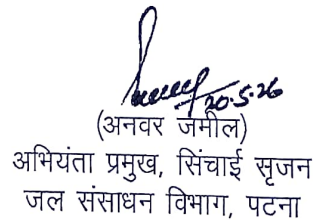 20.5.26
(अनवर जमील)
अभियंता प्रमुख, सिंचाई सृजन
जल संसाधन विभाग, पटना